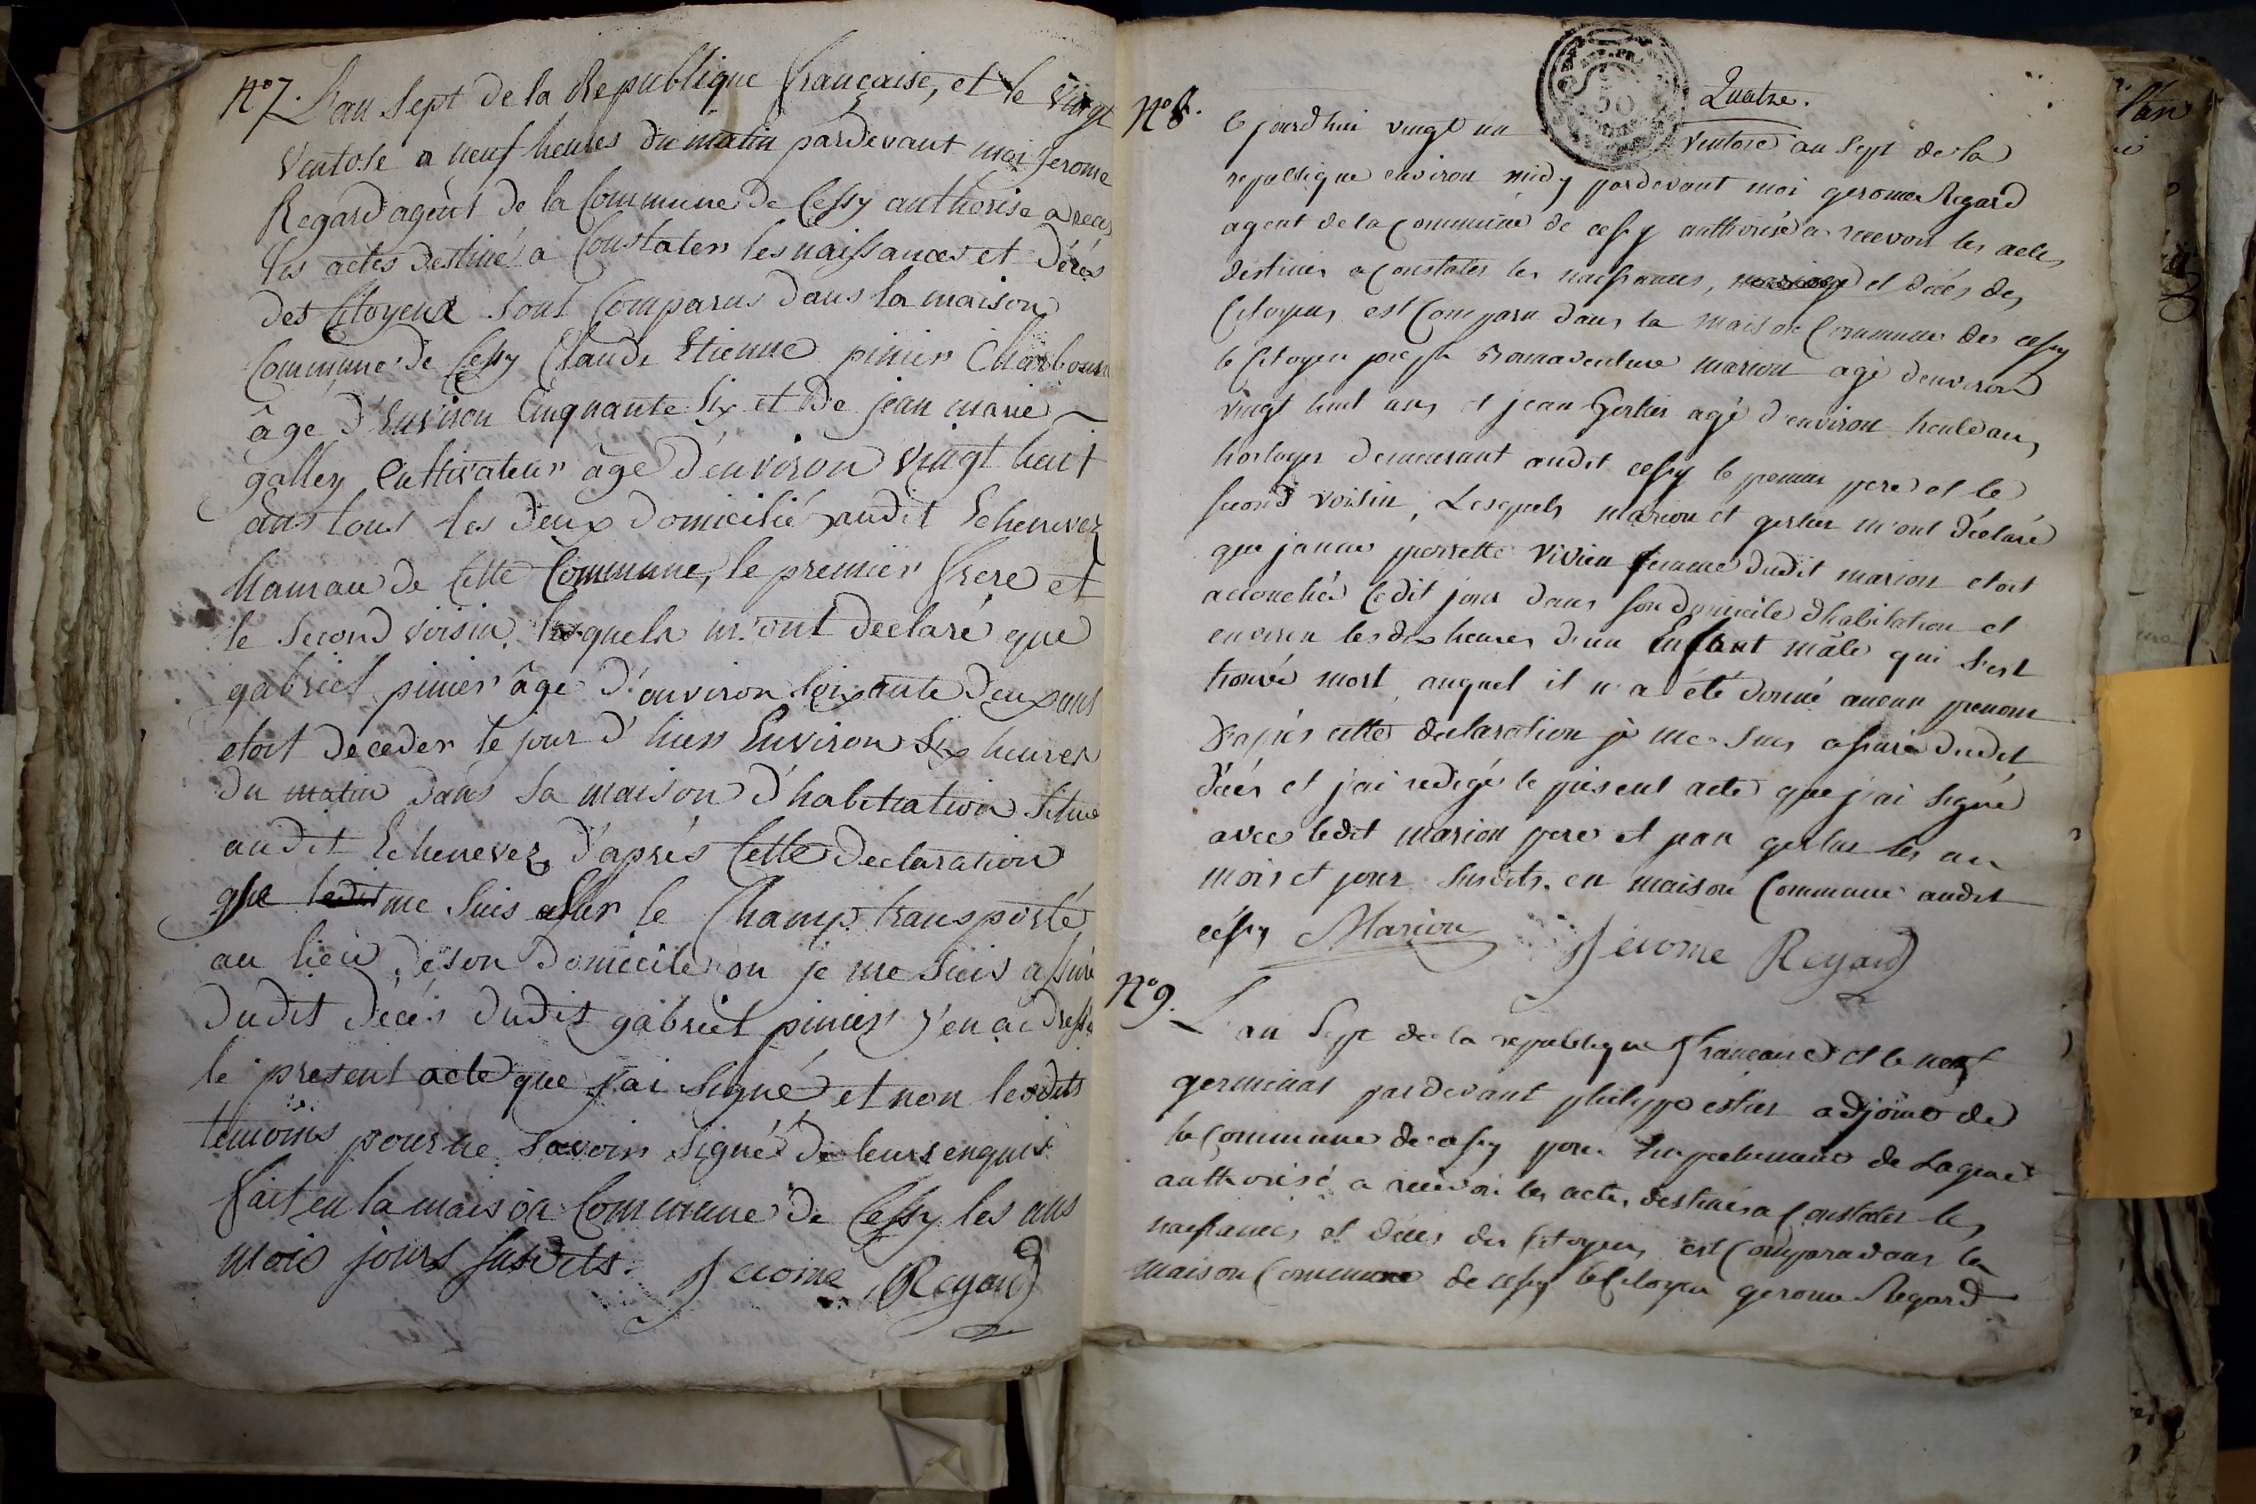 N.° 7. L'an Sept de la Republique française, et le vingt
Ventose a neuf heures du matin pardevant moi Jerome
Regard agent de la Commune de Cessy authorise a recev
les actes destiné a Constater les naissances et décés
des Citoyens sont Comparus dans la maison
Commune de Cessy Claude Etienne pinier Charbon
âgé d'Environ Cinquante Six et de jean marie
galley Cultivateur âgé d'environ vingt huit
ans tous les deux domicilié audit Echenevez
hamau de Cette Commune, le premier frere et
le Second voisin, lesquels m'ont declaré que
gabriel pinier âgé d'environ soixante deux ans
etoit deceder le jour d'hier Environ Six heures
du matin dans sa maison d'habitation Situé
audit Echenevez, d'aprés Cette declaration
me Suis Sur le Champ transporté
au lieu de son domicile ou je me suis assuré
dudit décés dudit gabriel pinier j'en ai dressé
le present acte que j'ai Signé et non lesdits
temoins pour ne savoir signé de leurs enquis
fait en la maison Commune de Cessy les ans
mois jours susdits. Jerome Regard
Quatre.
N.° 8. Cejourdhui vingt un ventose an Sept de la
republique environ midy pardevant moi gerome Regard
agent de la Commune de cessy authorisé a recevoir les actes
destinés a Constater les naissances, mariage et décés des
Citoyens, est Comparu dans la maison Commune de cessy
le Citoyen Bonaventure marion agé d'environ
vingt huit ans et jean Gerlier agé d'environ trente ans
horloger demeurant audit cessy le premier pere et le
second voisin, Lesquels marion et gerlier m'ont déclaré
que janne pierrette vivien femme dudit marion etoit
accouchée cedit jour dans son domicile d'habitation et
environ les dix heures d'un Enfant mâle qui s'est
trouvé mort auquel il n'a été donné aucun prenom
d'aprés cette declaration je me suis assuré dudit
décés et j'ai redigé le présent acte que j'ai signé
avec ledit marion pere et jean gerlier les an
mois et jour susdits. en maison Commune audit
céssy Marion Jerome Regard
N.° 9. L'an Sept de la republique française et le neuf
germinal pardevant philippe adjoint de
la Commune de cessy pour Empechement de Lagent
authorisé a recevoir les actes destinés a Constater les
naissances et décés des Citoyens est Comparu dans la
maison Commune de cessy le Citoyen gerome Regard